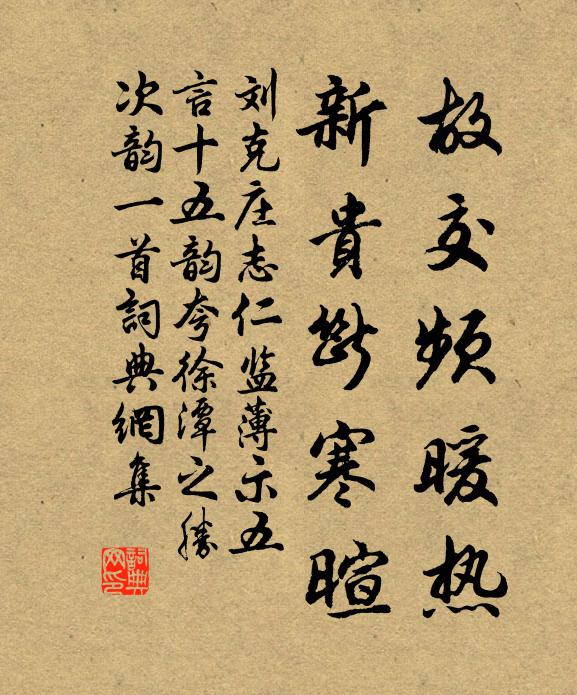 故交频暖热
新貴断寒暄
刘克庄志仁监薄示五
言十五韵夸徐潭之勝
次韵一首詞典網集
詞典
网印